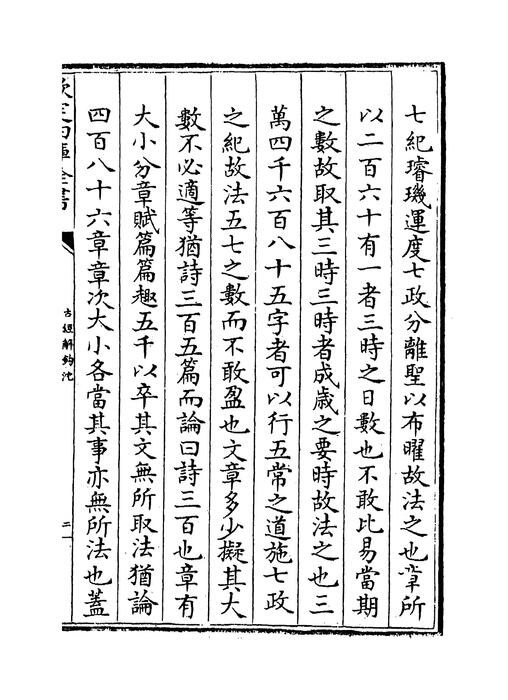 七紀璿璣運度七政分離聖以布曜故法之也章所
以二百六十有一者三時之日數也不敢比易當期
之數故取其三時三時者成歲之要時故法之也三
萬四千六百八十五字者可以行五常之道施七政
之紀故法五七之數而不敢盈也文章多少擬其大
數不必適等猶詩三百五篇而論曰詩三百也章有
大小分章賦篇篇趣五千以卒其文無所取法猶論
四百八十六章章次大小各當其事亦無所法也蓋
欽定四庫全書
古經解鉤沈